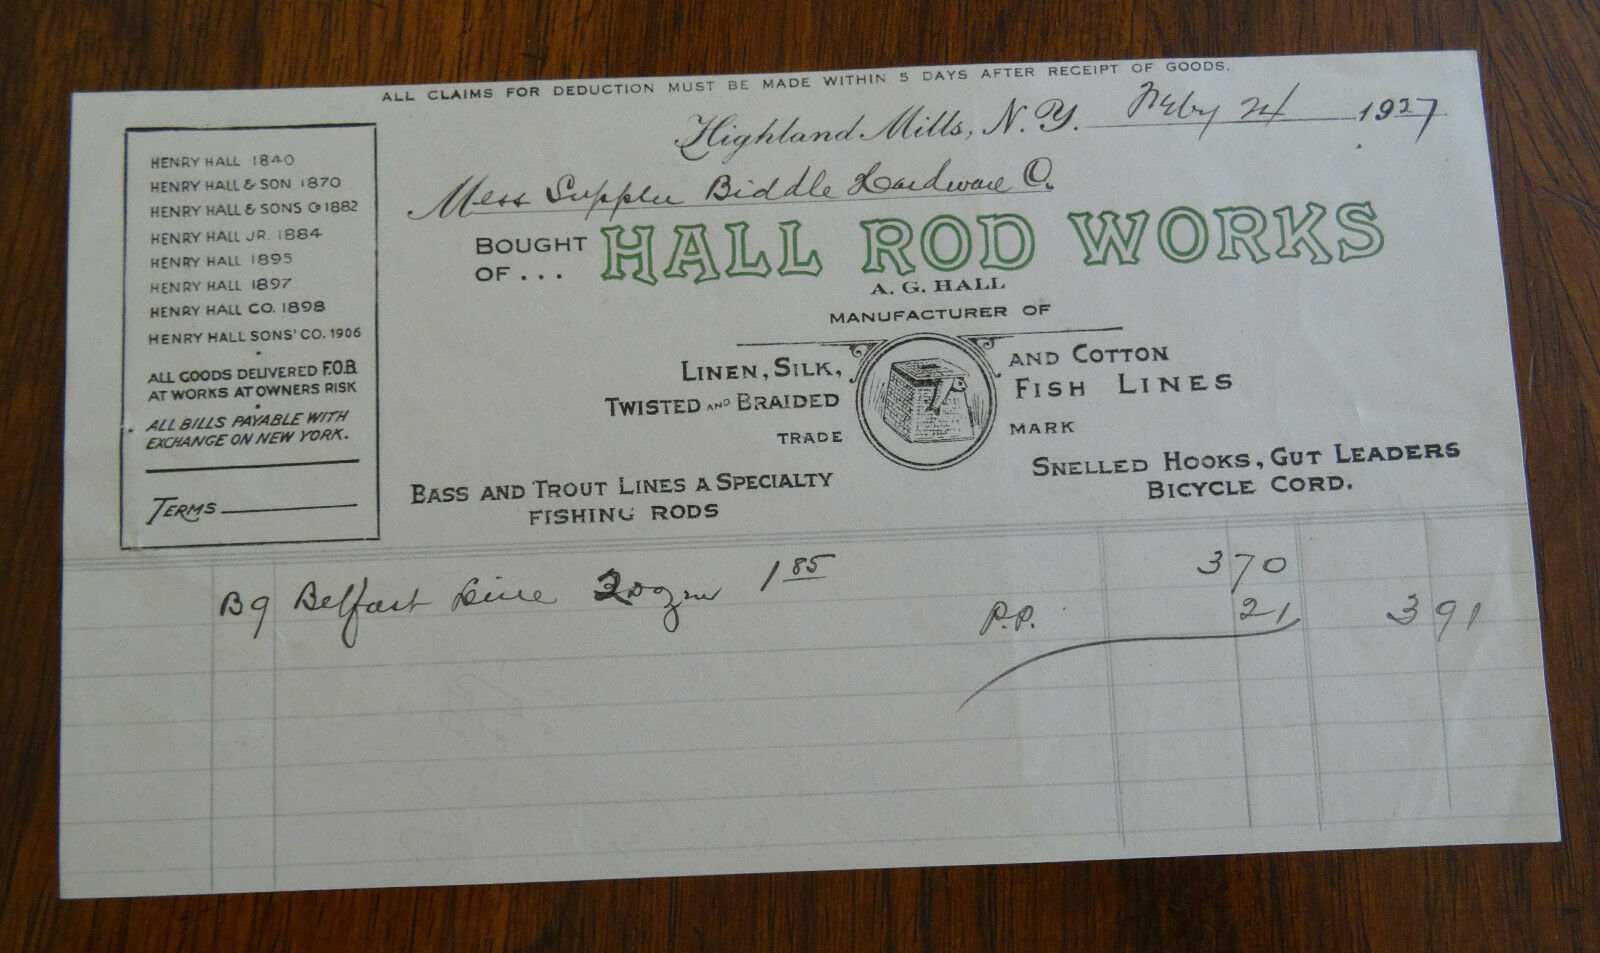 ALL CLAIMS FOR DEDUCTION MUST BE MADE WITHIN 5 DAYS AFTER RECEIPT OF GOODS.
Highland Mills, N. Y. Feby 24 1927
Mess Supplee Biddle Hardware Co.
BOUGHT OF... HALL ROD WORKS
A. G. HALL
MANUFACTURER OF
LINEN, SILK, AND COTTON
TWISTED AND BRAIDED FISH LINES
TRADE MARK
BASS AND TROUT LINES A SPECIALTY
FISHING RODS
SNELLED HOOKS, GUT LEADERS
BICYCLE CORD.
HENRY HALL 1840
HENRY HALL & SON 1870
HENRY HALL & SONS Co 1882
HENRY HALL JR. 1884
HENRY HALL 1895
HENRY HALL 1897
HENRY HALL CO. 1898
HENRY HALL SONS' CO. 1906
ALL GOODS DELIVERED F.O.B.
AT WORKS AT OWNERS RISK
ALL BILLS PAYABLE WITH
EXCHANGE ON NEW YORK.
TERMS
B9 Belfast Line 2 dozen 1 85 3 70
P.P. 21 3 91